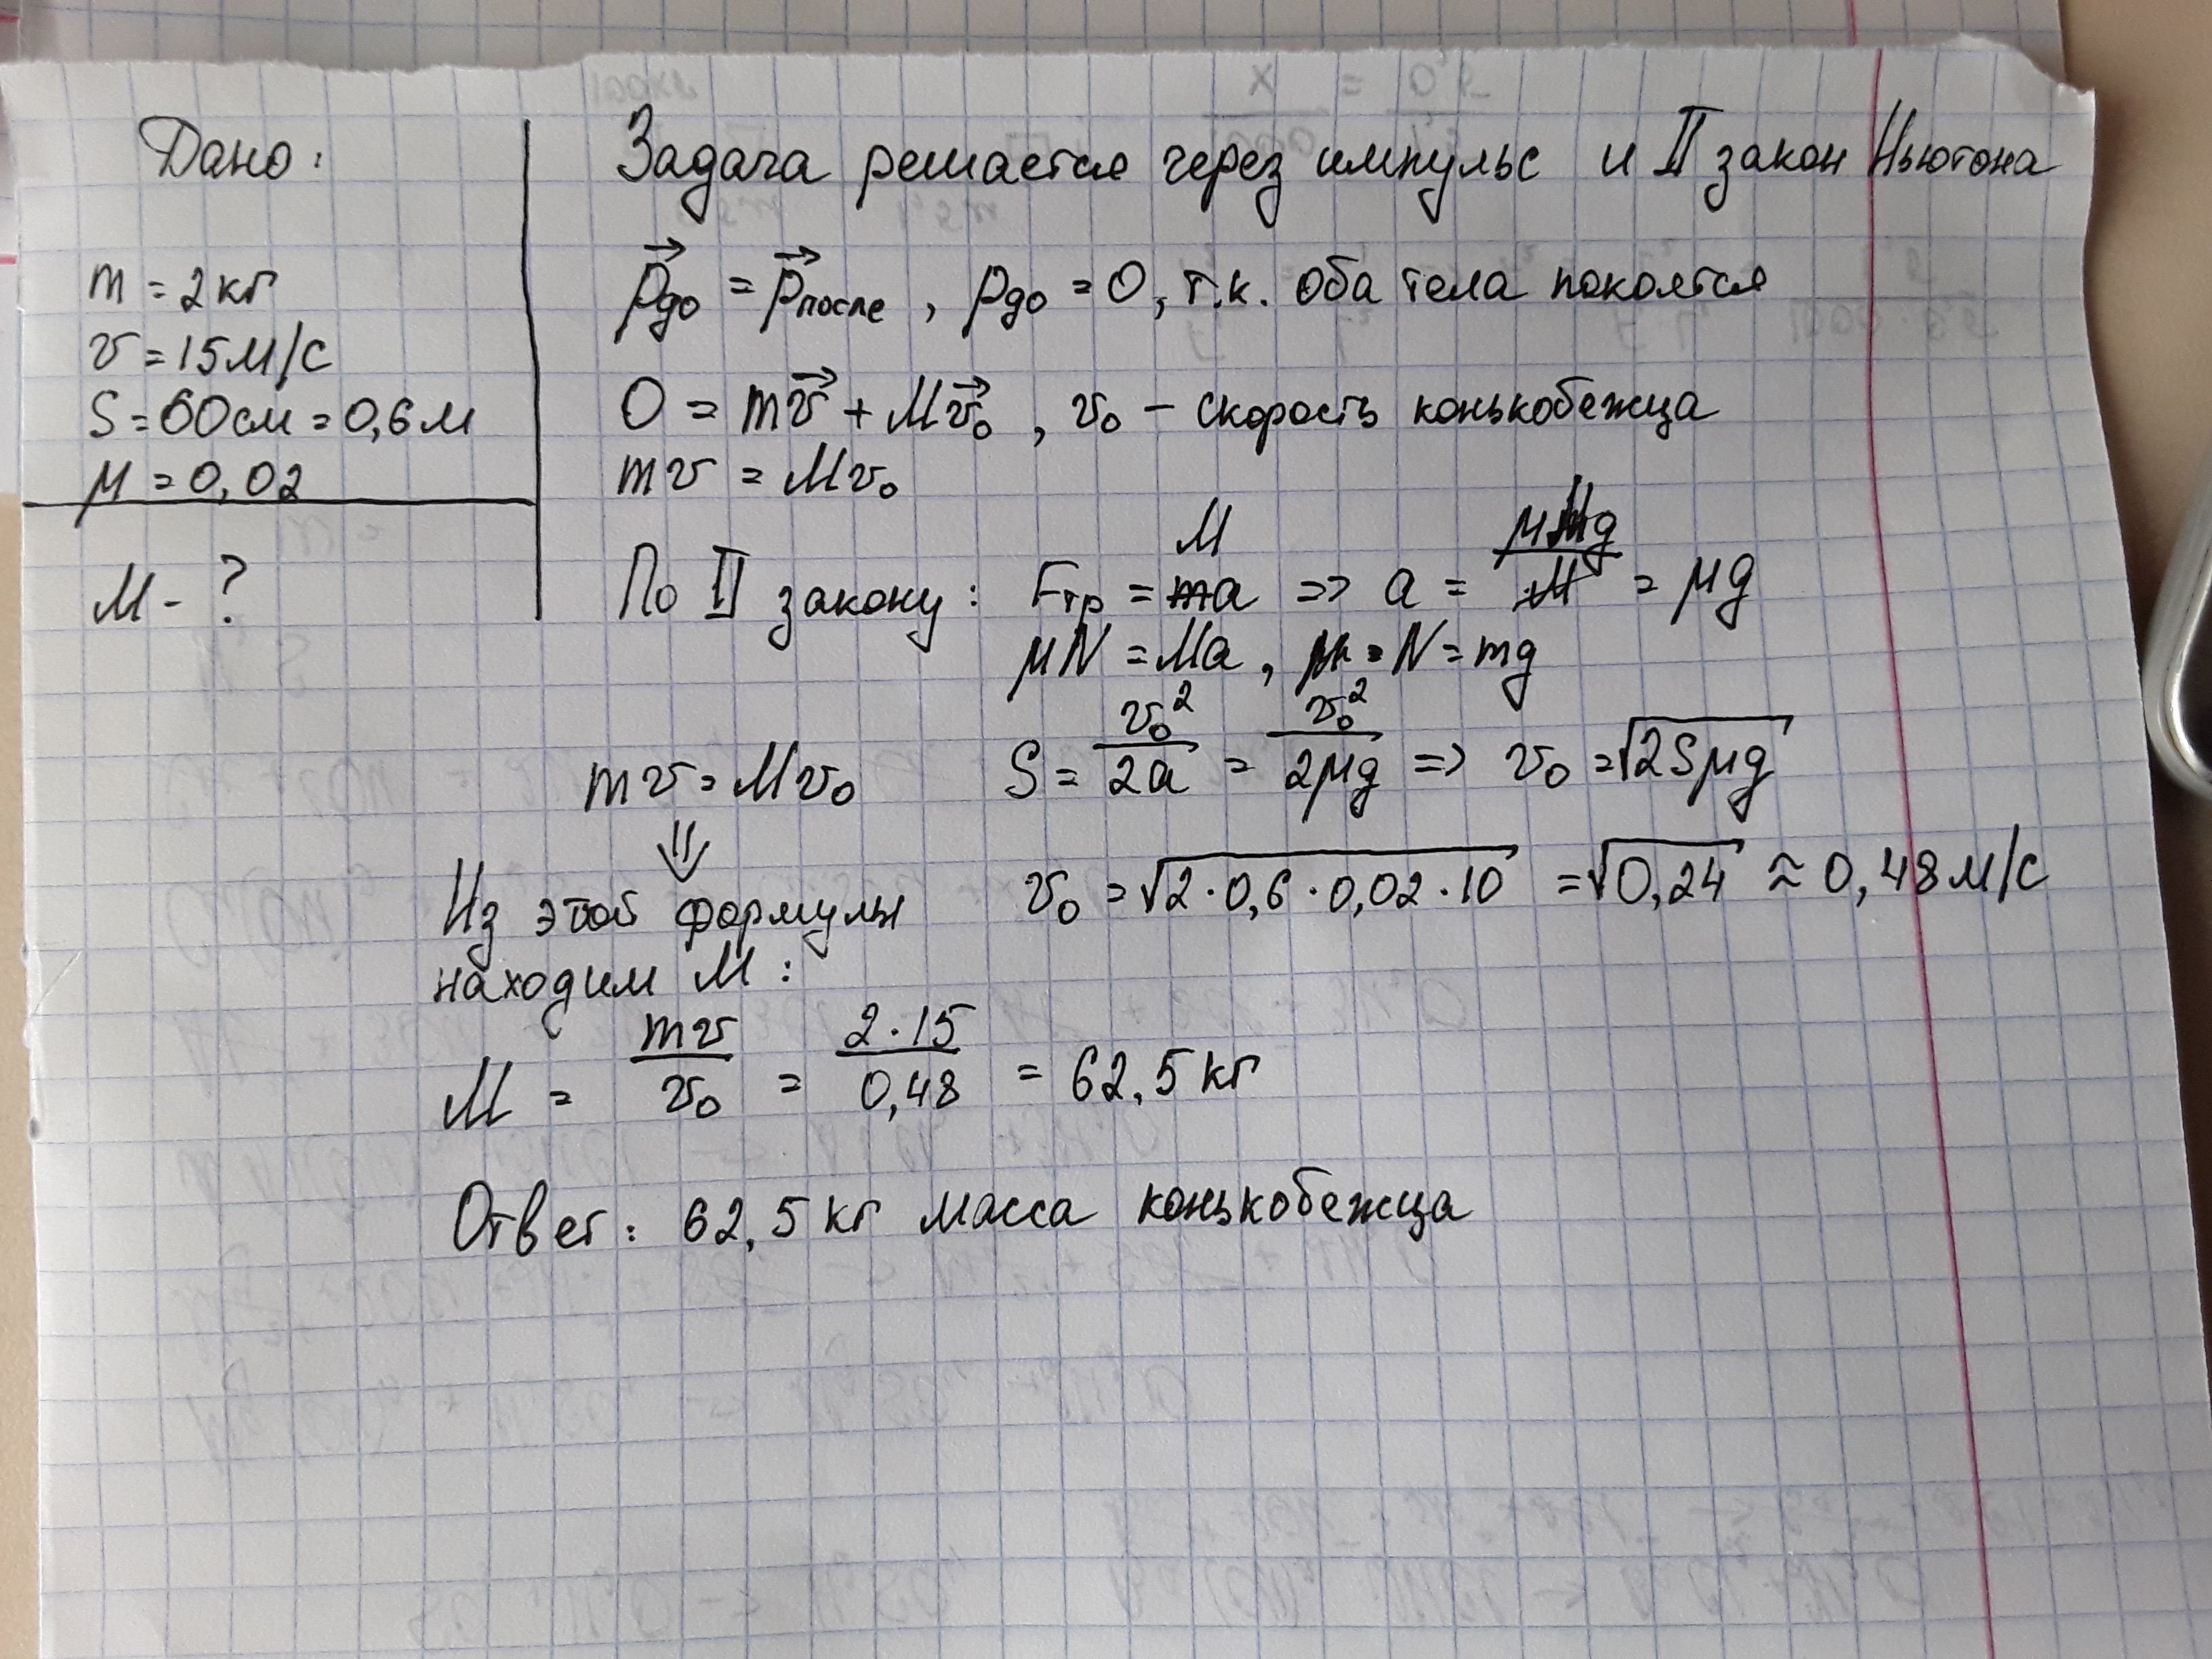 Дано:
m = 2 кг
v = 15 м/с
S = 60 см = 0,6 м
μ = 0,02
M - ?
Задача решается через импульс и II закон Ньютона
p⃗до = p⃗после , pдо = 0, т.к. оба тела покоятся
0 = mv⃗ + Mv⃗₀ , v₀ - скорость конькобежца
mv = Mv₀
По II закону: Fтр = Ma => a = μMg/M = μg
μN = Ma, N = mg
mv = Mv₀
S = v₀²/2a = v₀²/2μg => v₀ = √2Sμg
⇓
Из этой формулы
находим M:
v₀ = √2·0,6·0,02·10 = √0,24 ≈ 0,48 м/с
M = mv/v₀ = 2·15/0,48 = 62,5 кг
Ответ: 62,5 кг масса конькобежца